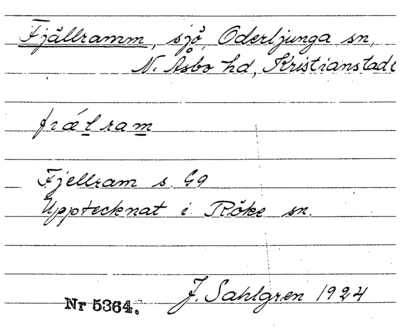 Fjällramm, sjö, Oderljunga sn,
N. Åsbo hd, Kristianstads
fiælram
Fjellram s. G9
Upptecknat i Röke sn.
J. Sahlgren 1924
Nr 5364.